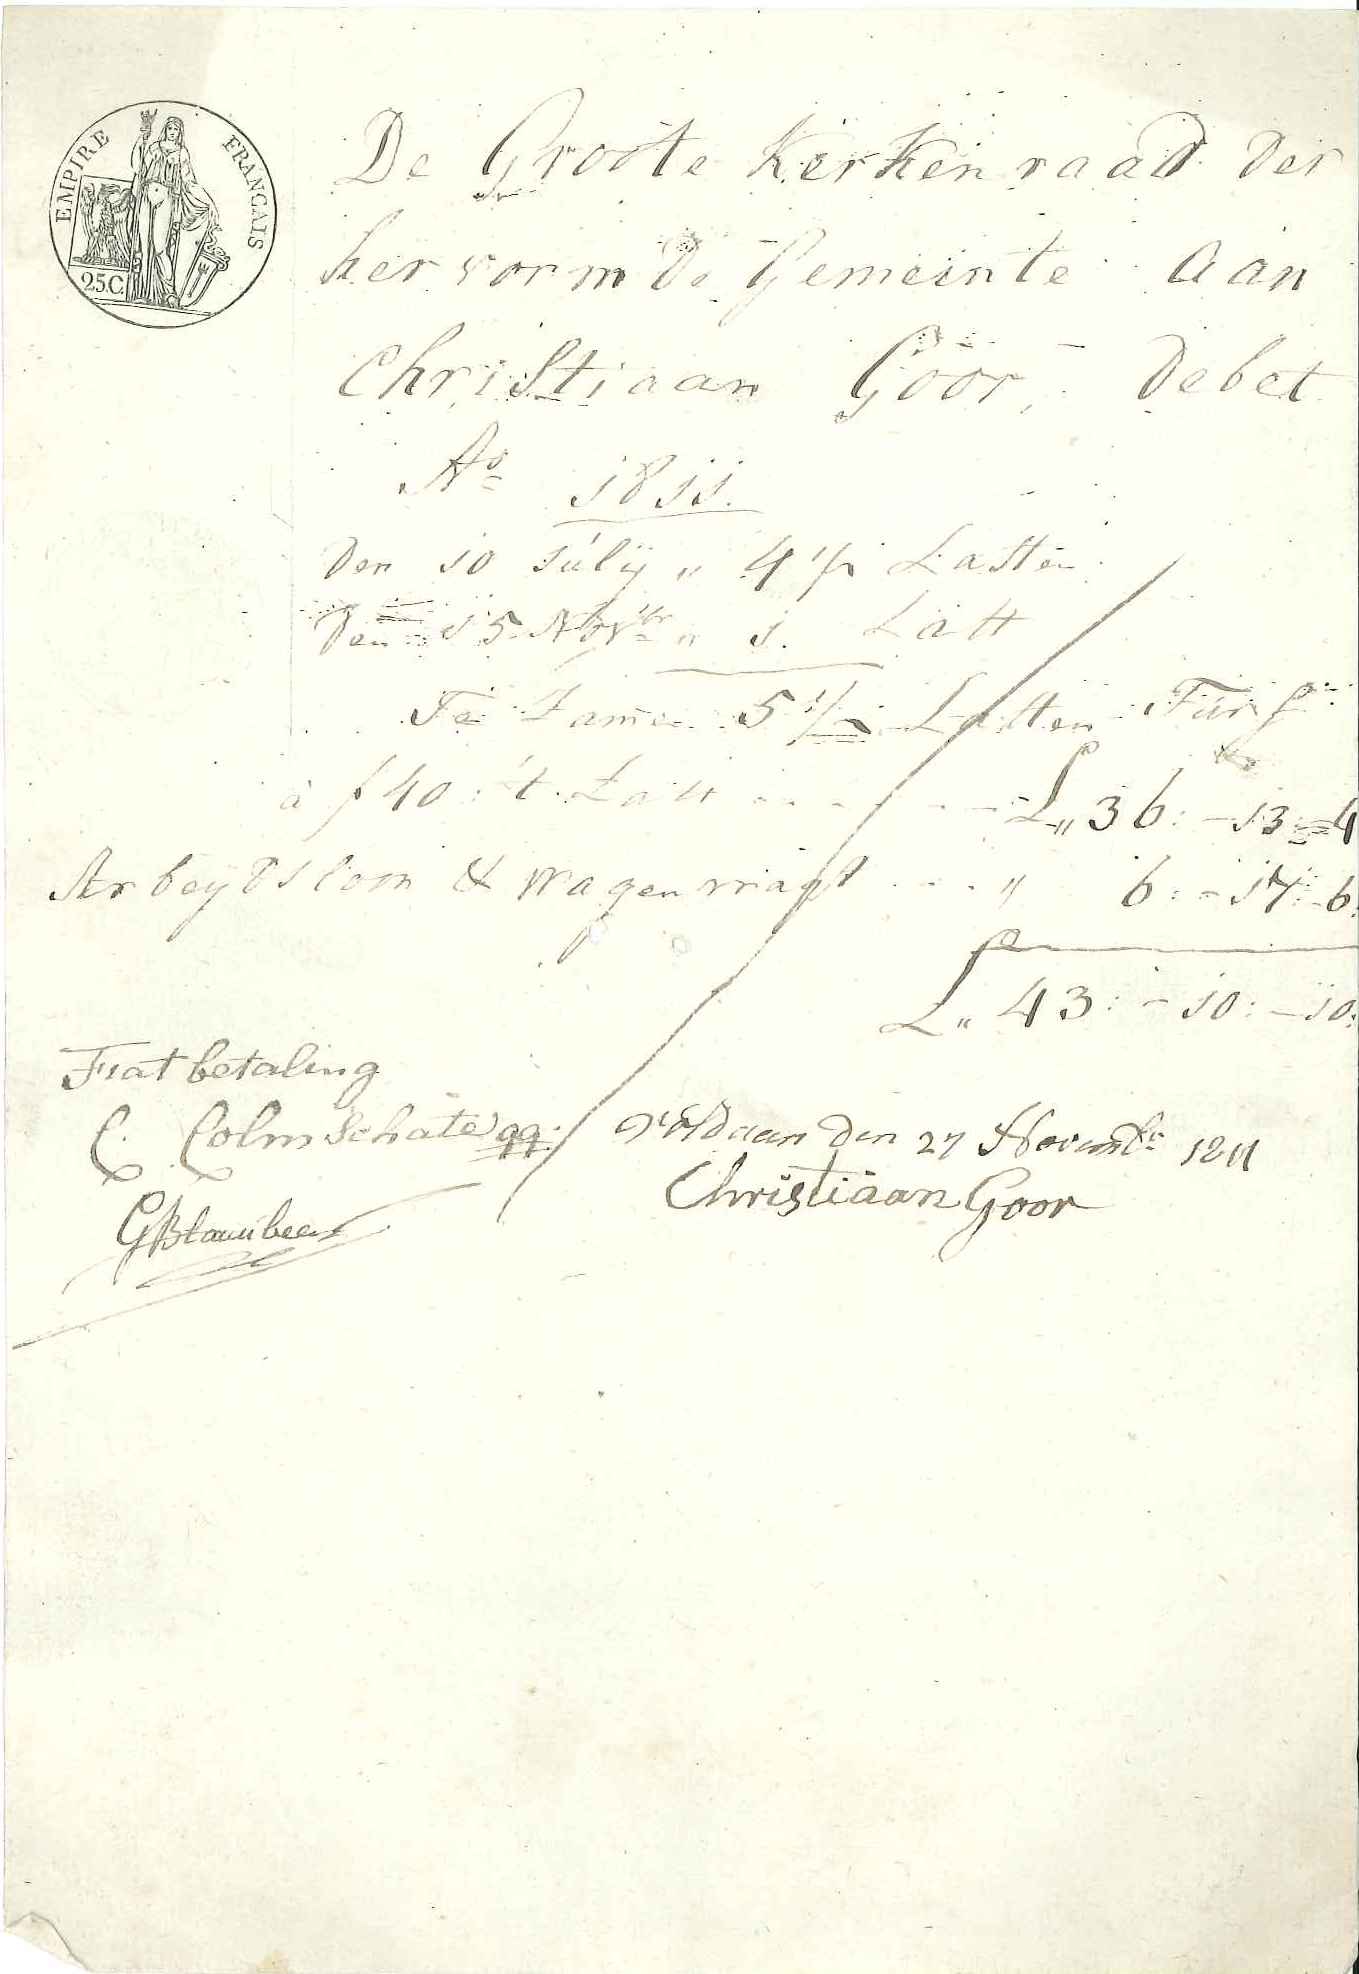 EMPIRE FRANCAIS
25C.
De Groote Kerkenraad der
hervormde Gemeinte aan
Christiaan Goor, Debet
Ao 1811.
Den 10 Julij „ 4 1/2 Lasten
Den 15 Novbr „ 1. Last
Te Zamen 5 1/2 Lasten Turf
à f 40: 't Last - - - - £„ 36: - 13: - 4
Arbeijdsloon & wagenvragt - - - „ 6: - 17: - 6:
£„ 43: - 10: - 10:
Fiat betaling
C. Colmschate qq:
voldaan den 27 Novembr 1811
Christiaan Goor